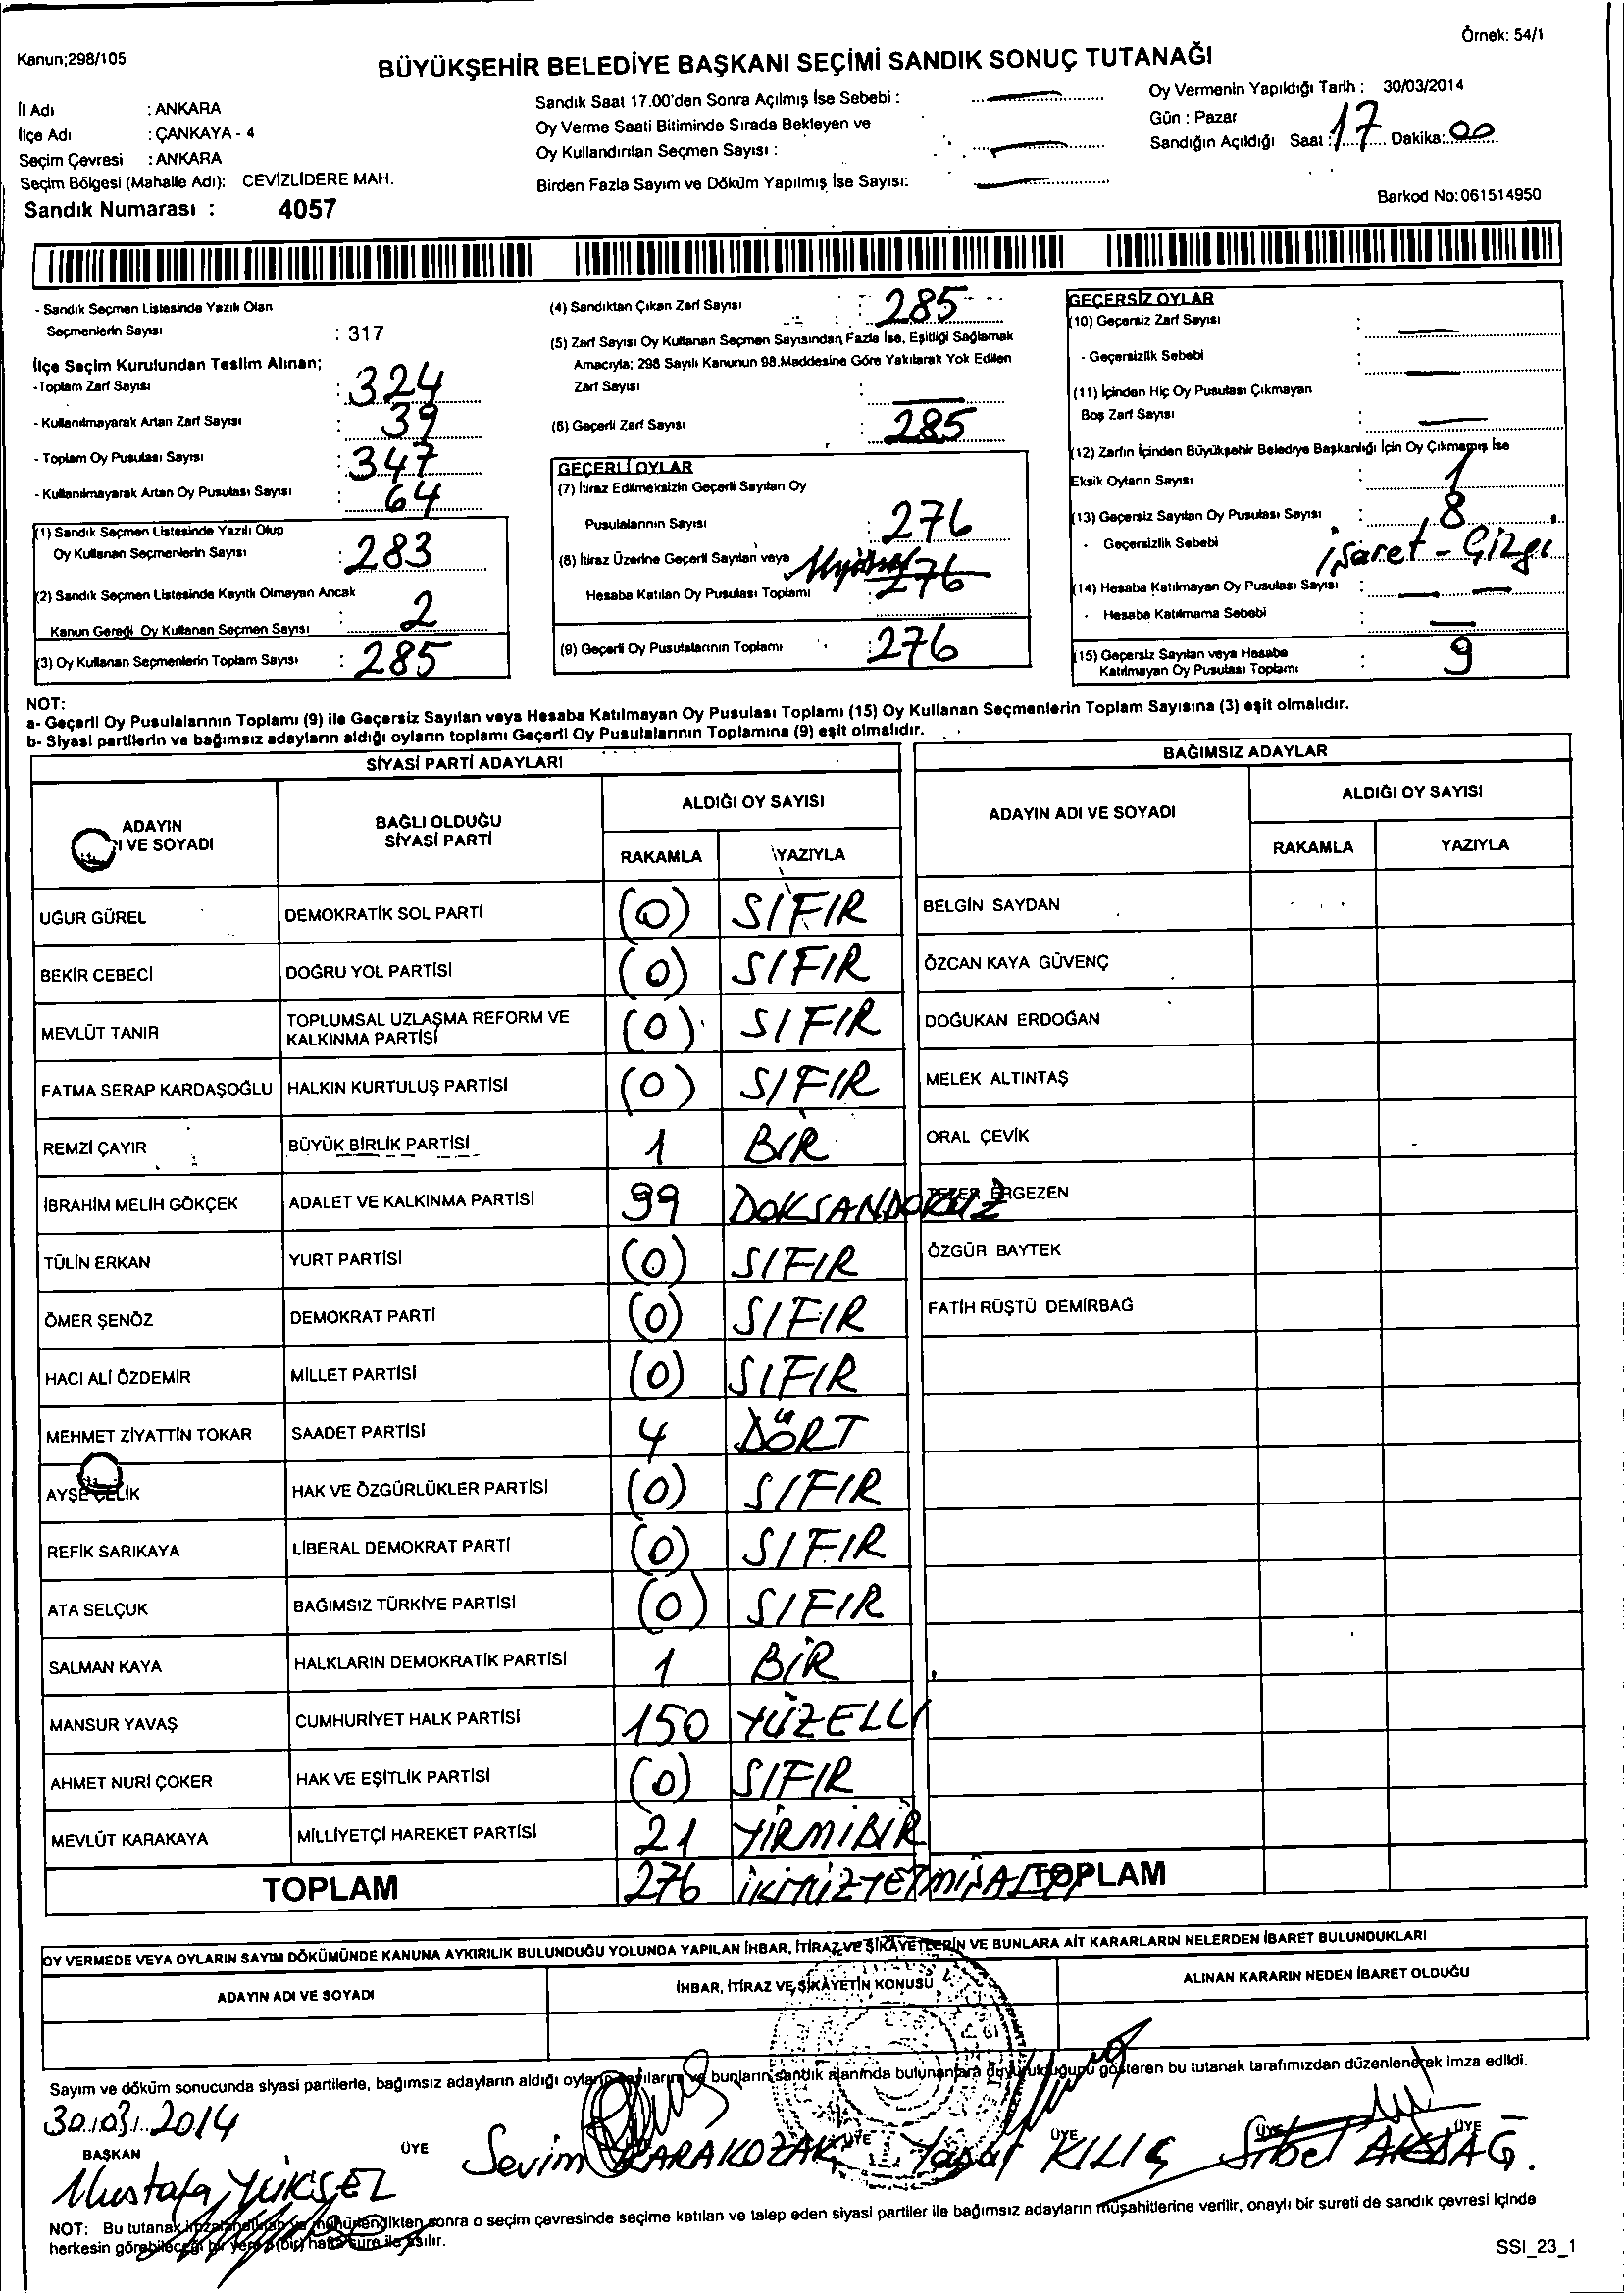 Kanun;298/105
Örnek: 54/1
BÜYÜKŞEHİR BELEDİYE BAŞKANI SEÇİMİ SANDIK SONUÇ TUTANAĞI
İl Adı : ANKARA
İlçe Adı : ÇANKAYA - 4
Seçim Çevresi : ANKARA
Seçim Bölgesi (Mahalle Adı): CEVİZLİDERE MAH.
Sandık Numarası : 4057
Sandık Saat 17.00'den Sonra Açılmış İse Sebebi :
Oy Verme Saati Bitiminde Sırada Bekleyen ve
Oy Kullandırılan Seçmen Sayısı :
Birden Fazla Sayım ve Döküm Yapılmış İse Sayısı:
Oy Vermenin Yapıldığı Tarih : 30/03/2014
Gün : Pazar
Sandığın Açıldığı Saat : 17 Dakika: 00
Barkod No:061514950
- Sandık Seçmen Listesinde Yazılı Olan
Seçmenlerin Sayısı : 317
İlçe Seçim Kurulundan Teslim Alınan;
-Toplam Zarf Sayısı : 324
- Kullanılmayarak Artan Zarf Sayısı : 39
- Toplam Oy Pusulası Sayısı : 347
- Kullanılmayarak Artan Oy Pusulası Sayısı : 64
(1) Sandık Seçmen Listesinde Yazılı Olup
Oy Kullanan Seçmenlerin Sayısı : 283
(2) Sandık Seçmen Listesinde Kayıtlı Olmayan Ancak
Kanun Gereği Oy Kullanan Seçmen Sayısı : 2
(3) Oy Kullanan Seçmenlerin Toplam Sayısı : 285
(4) Sandıktan Çıkan Zarf Sayısı : 285
(5) Zarf Sayısı Oy Kullanan Seçmen Sayısından Fazla İse, Eşitliği Sağlamak
Amacıyla; 298 Sayılı Kanunun 98.Maddesine Göre Yakılarak Yok Edilen
Zarf Sayısı :
(6) Geçerli Zarf Sayısı : 285
GEÇERLİ OYLAR
(7) İtiraz Edilmeksizin Geçerli Sayılan Oy
Pusulalarının Sayısı : 276
(8) İtiraz Üzerine Geçerli Sayılan veya
Hesaba Katılan Oy Pusulası Toplamı : 276
(9) Geçerli Oy Pusulalarının Toplamı : 276
GEÇERSİZ OYLAR
(10) Geçersiz Zarf Sayısı :
- Geçersizlik Sebebi :
(11) İçinden Hiç Oy Pusulası Çıkmayan
Boş Zarf Sayısı :
(12) Zarfın İçinden Büyükşehir Belediye Başkanlığı İçin Oy Çıkmamış İse
Eksik Oyların Sayısı : 1
(13) Geçersiz Sayılan Oy Pusulası Sayısı : 8
- Geçersizlik Sebebi işaret - Çizgi
(14) Hesaba Katılmayan Oy Pusulası Sayısı :
- Hesaba Katılmama Sebebi :
(15) Geçersiz Sayılan veya Hesaba
Katılmayan Oy Pusulası Toplamı : 9
NOT:
a- Geçerli Oy Pusulalarının Toplamı (9) ile Geçersiz Sayılan veya Hesaba Katılmayan Oy Pusulası Toplamı (15) Oy Kullanan Seçmenlerin Toplam Sayısına (3) eşit olmalıdır.
b- Siyasi partilerin ve bağımsız adayların aldığı oyların toplamı Geçerli Oy Pusulalarının Toplamına (9) eşit olmalıdır.
SİYASİ PARTİ ADAYLARI
BAĞIMSIZ ADAYLAR
ADAYIN
VE SOYADI
BAĞLI OLDUĞU
SİYASİ PARTİ
ALDIĞI OY SAYISI
RAKAMLA YAZIYLA
ADAYIN ADI VE SOYADI
ALDIĞI OY SAYISI
RAKAMLA YAZIYLA
UĞUR GÜREL DEMOKRATİK SOL PARTİ (0) SIFIR BELGİN SAYDAN
BEKİR CEBECİ DOĞRU YOL PARTİSİ (0) SIFIR ÖZCAN KAYA GÜVENÇ
MEVLÜT TANIR TOPLUMSAL UZLAŞMA REFORM VE
KALKINMA PARTİSİ (0) SIFIR DOĞUKAN ERDOĞAN
FATMA SERAP KARDAŞOĞLU HALKIN KURTULUŞ PARTİSİ (0) SIFIR MELEK ALTINTAŞ
REMZİ ÇAYIR BÜYÜK BİRLİK PARTİSİ 1 BİR ORAL ÇEVİK
İBRAHİM MELİH GÖKÇEK ADALET VE KALKINMA PARTİSİ 99 DOKSANDOKUZ ERGEZEN
TÜLİN ERKAN YURT PARTİSİ (0) SIFIR ÖZGÜR BAYTEK
ÖMER ŞENÖZ DEMOKRAT PARTİ (0) SIFIR FATİH RÜŞTÜ DEMİRBAĞ
HACI ALİ ÖZDEMİR MİLLET PARTİSİ (0) SIFIR
MEHMET ZİYATTİN TOKAR SAADET PARTİSİ 4 DÖRT
AYŞE ÇELİK HAK VE ÖZGÜRLÜKLER PARTİSİ (0) SIFIR
REFİK SARIKAYA LİBERAL DEMOKRAT PARTİ (0) SIFIR
ATA SELÇUK BAĞIMSIZ TÜRKİYE PARTİSİ (0) SIFIR
SALMAN KAYA HALKLARIN DEMOKRATİK PARTİSİ 1 BİR
MANSUR YAVAŞ CUMHURİYET HALK PARTİSİ 150 YÜZELLİ
AHMET NURİ ÇOKER HAK VE EŞİTLİK PARTİSİ (0) SIFIR
MEVLÜT KARAKAYA MİLLİYETÇİ HAREKET PARTİSİ 21 YİRMİBİR
TOPLAM 276 İKİYÜZYETMİŞALTI TOPLAM
OY VERMEDE VEYA OYLARIN SAYIM DÖKÜMÜNDE KANUNA AYKIRILIK BULUNDUĞU YOLUNDA YAPILAN İHBAR, İTİRAZ VE ŞİKAYETLERİN VE BUNLARA AİT KARARLARIN NELERDEN İBARET BULUNDUKLARI
ADAYIN ADI VE SOYADI
İHBAR, İTİRAZ VE ŞİKAYETİN KONUSU
ALINAN KARARIN NEDEN İBARET OLDUĞU
Sayım ve döküm sonucunda siyasi partilerle, bağımsız adayların aldığı oyların sayılarını ve bunların sandık alanında bulunanlara duyurulduğunu gösteren bu tutanak tarafımızdan düzenlenerek imza edildi.
30.03.2014
BAŞKAN ÜYE ÜYE ÜYE ÜYE ÜYE
Mustafa YÜKSEL Sevim KARAKOZAK Yaşar KILIÇ Sibel AKDAĞ.
NOT: Bu tutanak imzalandıktan ve mühürlendikten sonra o seçim çevresinde seçime katılan ve talep eden siyasi partiler ile bağımsız adayların müşahitlerine verilir, onaylı bir sureti de sandık çevresi içinde
herkesin görebileceği bir yere (bir) hafta süre ile asılır.
SSI_23_1